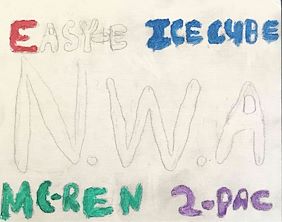 EASY-E ICE CUBE
N.W.A
MC-REN 2-PAC